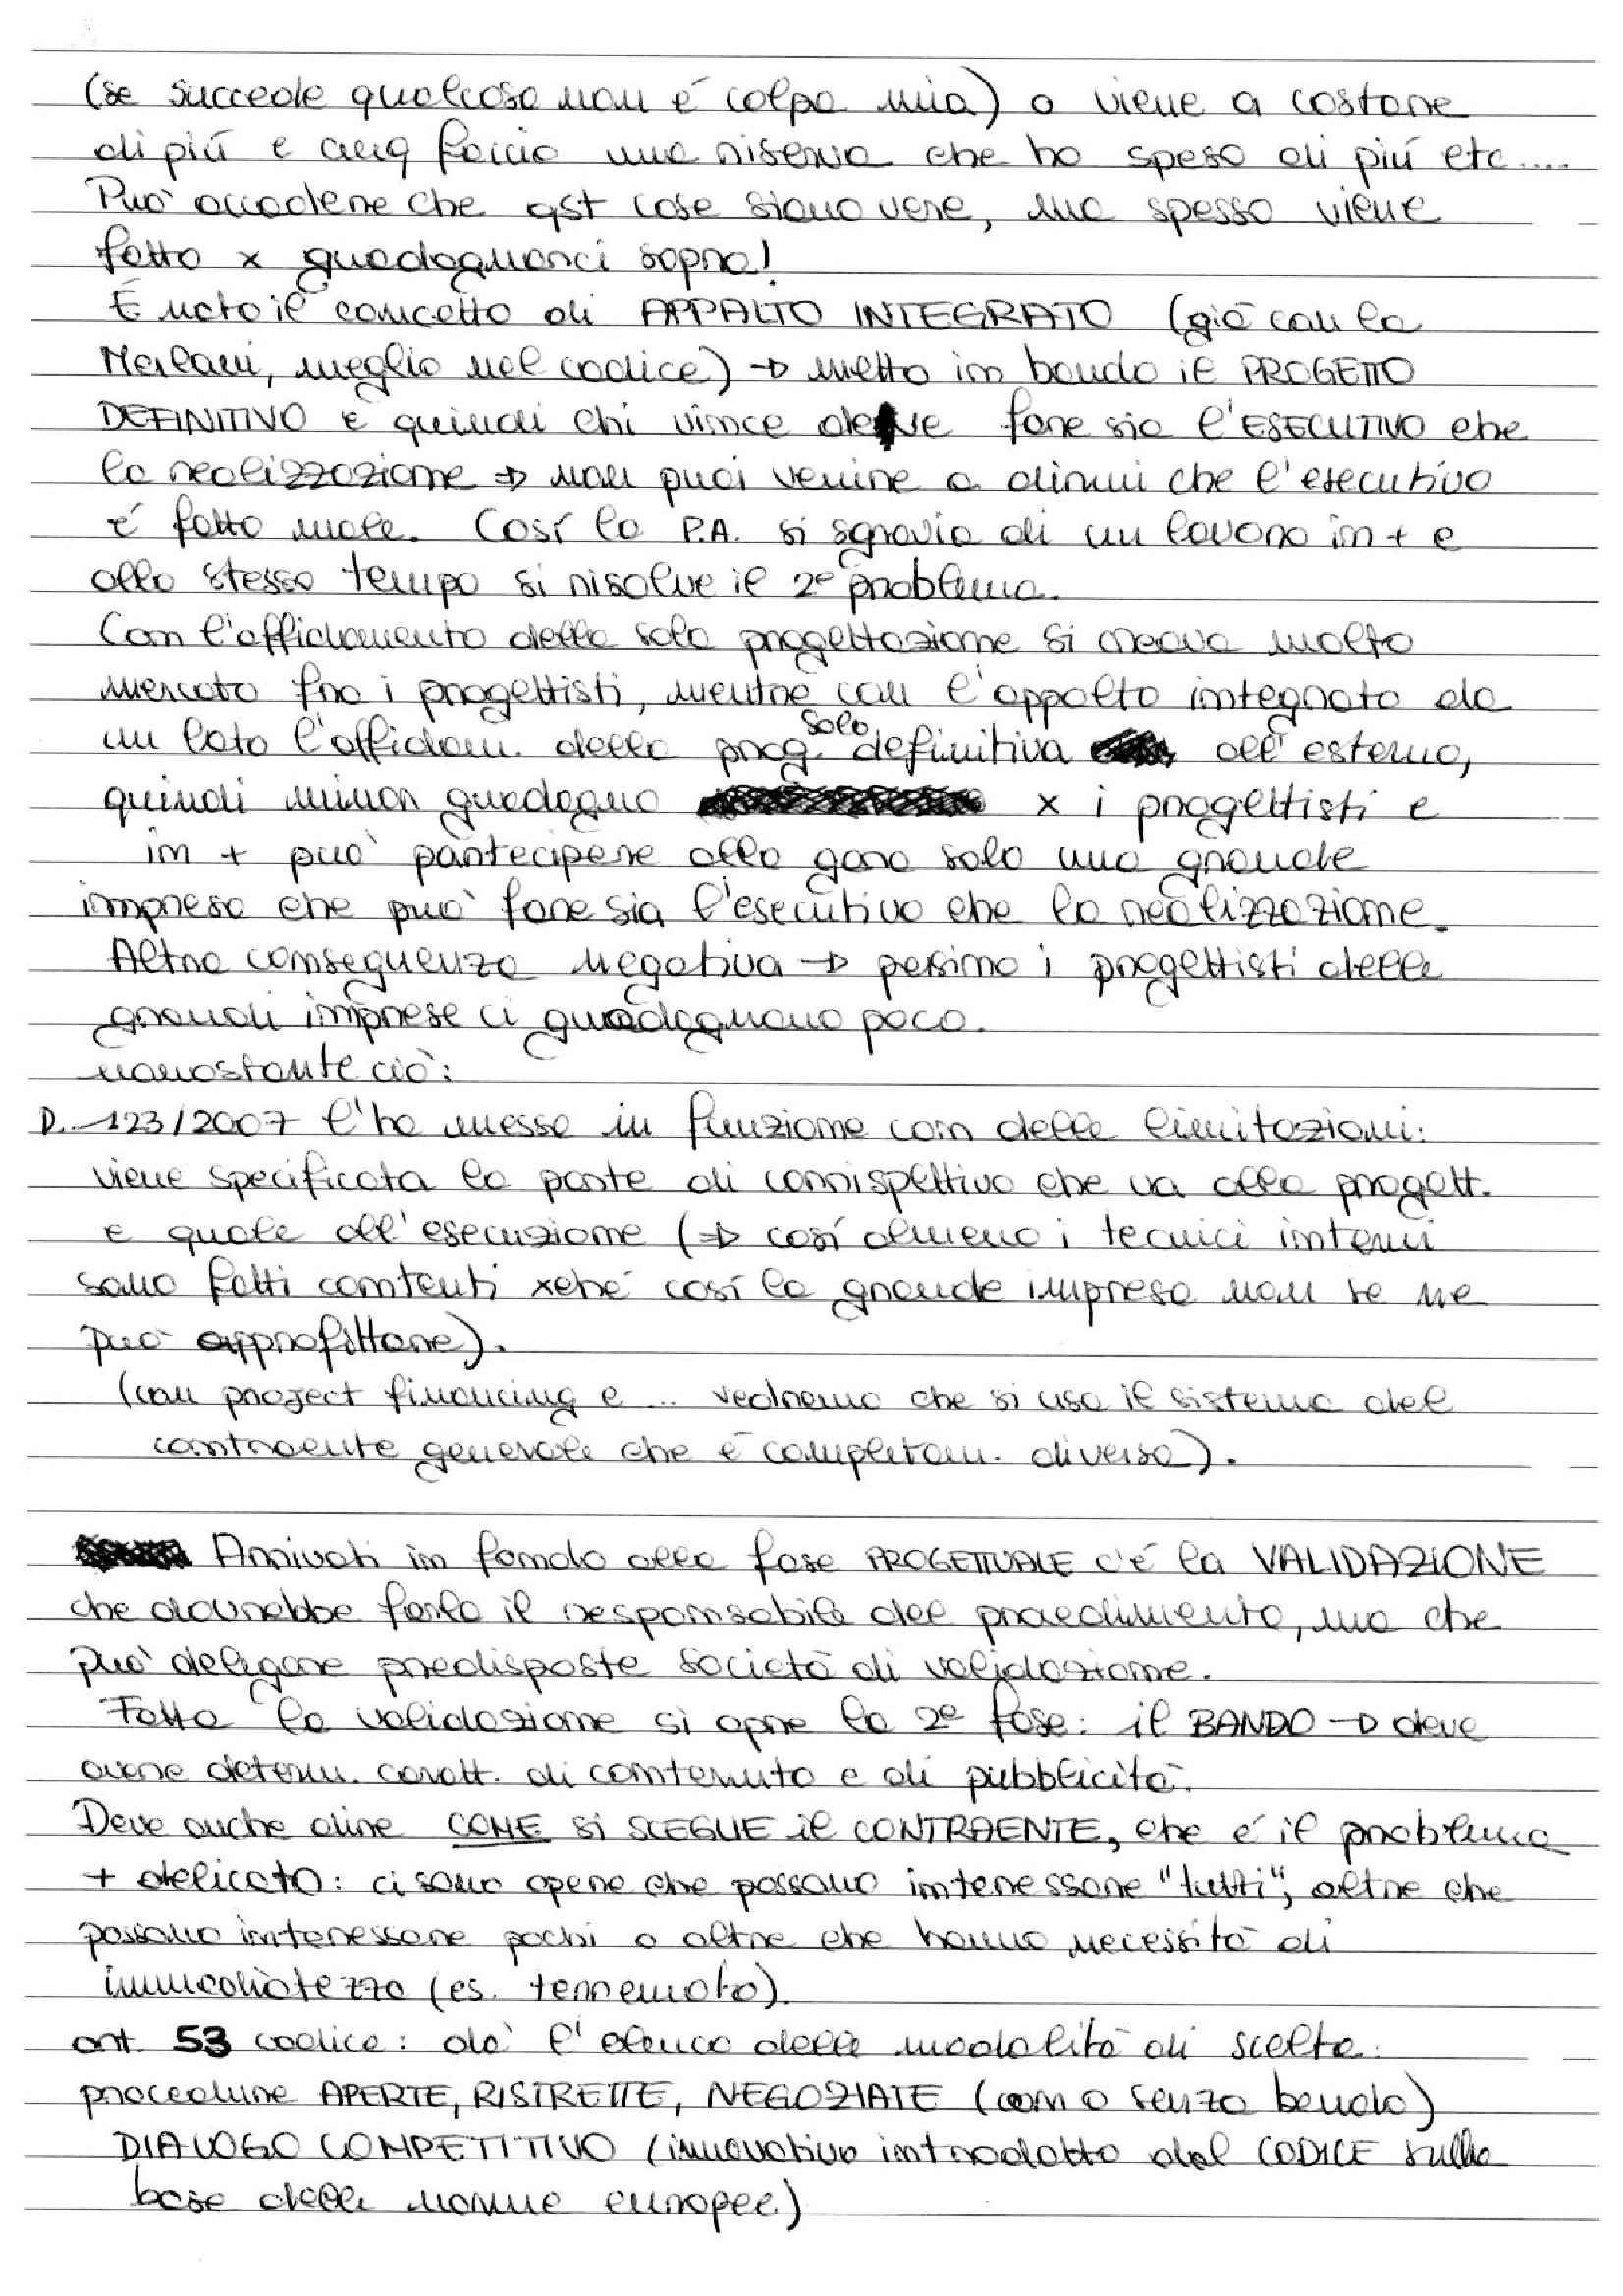 (se succede qualcosa non é colpa mia) o viene a costare
di piú e cmq faccio una riserva che ho speso di piú etc....
Può accadere che qst cose siano vere, ma spesso viene
fatto x guadagnarci sopra!
É nato il concetto di APPALTO INTEGRATO (già con la
Merloni, meglio nel codice) → metto in bando il PROGETTO
DEFINITIVO e quindi chi vince deve fare sia l'ESECUTIVO che
la realizzazione ⇒ non puoi venire a dirmi che l'esecutivo
é fatto male. Cosí la P.A. si sgravia di un lavoro in + e
allo stesso tempo si risolve il 2º problema.
Con l'affidamento della sola progettazione si creava molto
mercato fra i progettisti, mentre con l'appalto integrato da
un lato l'affidam. della prog. solo definitiva all'esterno,
quindi minor guadagno x i progettisti e
in + può partecipare alla gara solo una grande
impresa che può fare sia l'esecutivo che la realizzazione.
Altra conseguenza negativa → persino i progettisti delle
grandi imprese ci guadagnano poco.
nonostante ciò:
D. 123/2007 l'ha messo in funzione con delle limitazioni:
viene specificata la parte di corrispettivo che va alla progett.
e quale all'esecuzione (⇒ cosí almeno i tecnici interni
sono fatti contenti xché cosí la grande impresa non se ne
può approfittare).
(con project financing e ... vedremo che si usa il sistema del
contraente generale che é completam. diverso).
Arrivati in fondo alla fase PROGETTUALE c'é la VALIDAZIONE
che dovrebbe farla il responsabile del procedimento, ma che
può delegare predisposte società di validazione.
Fatta la validazione si apre la 2ª fase: il BANDO → deve
avere determ. caratt. di contenuto e di pubblicità.
Deve anche dire COME SI SCEGLIE il CONTRAENTE, che é il problema
+ delicato: ci sono opere che possono interessare "tutti", altre che
possono interessare pochi o altre che hanno necessità di
immediatezza (es. terremoto).
art. 53 codice: dà l'elenco delle modalità di scelta:
procedure APERTE, RISTRETTE, NEGOZIATE (con o senza bando)
DIALOGO COMPETITIVO (innovativo introdotto dal CODICE sulla
base delle norme europee)